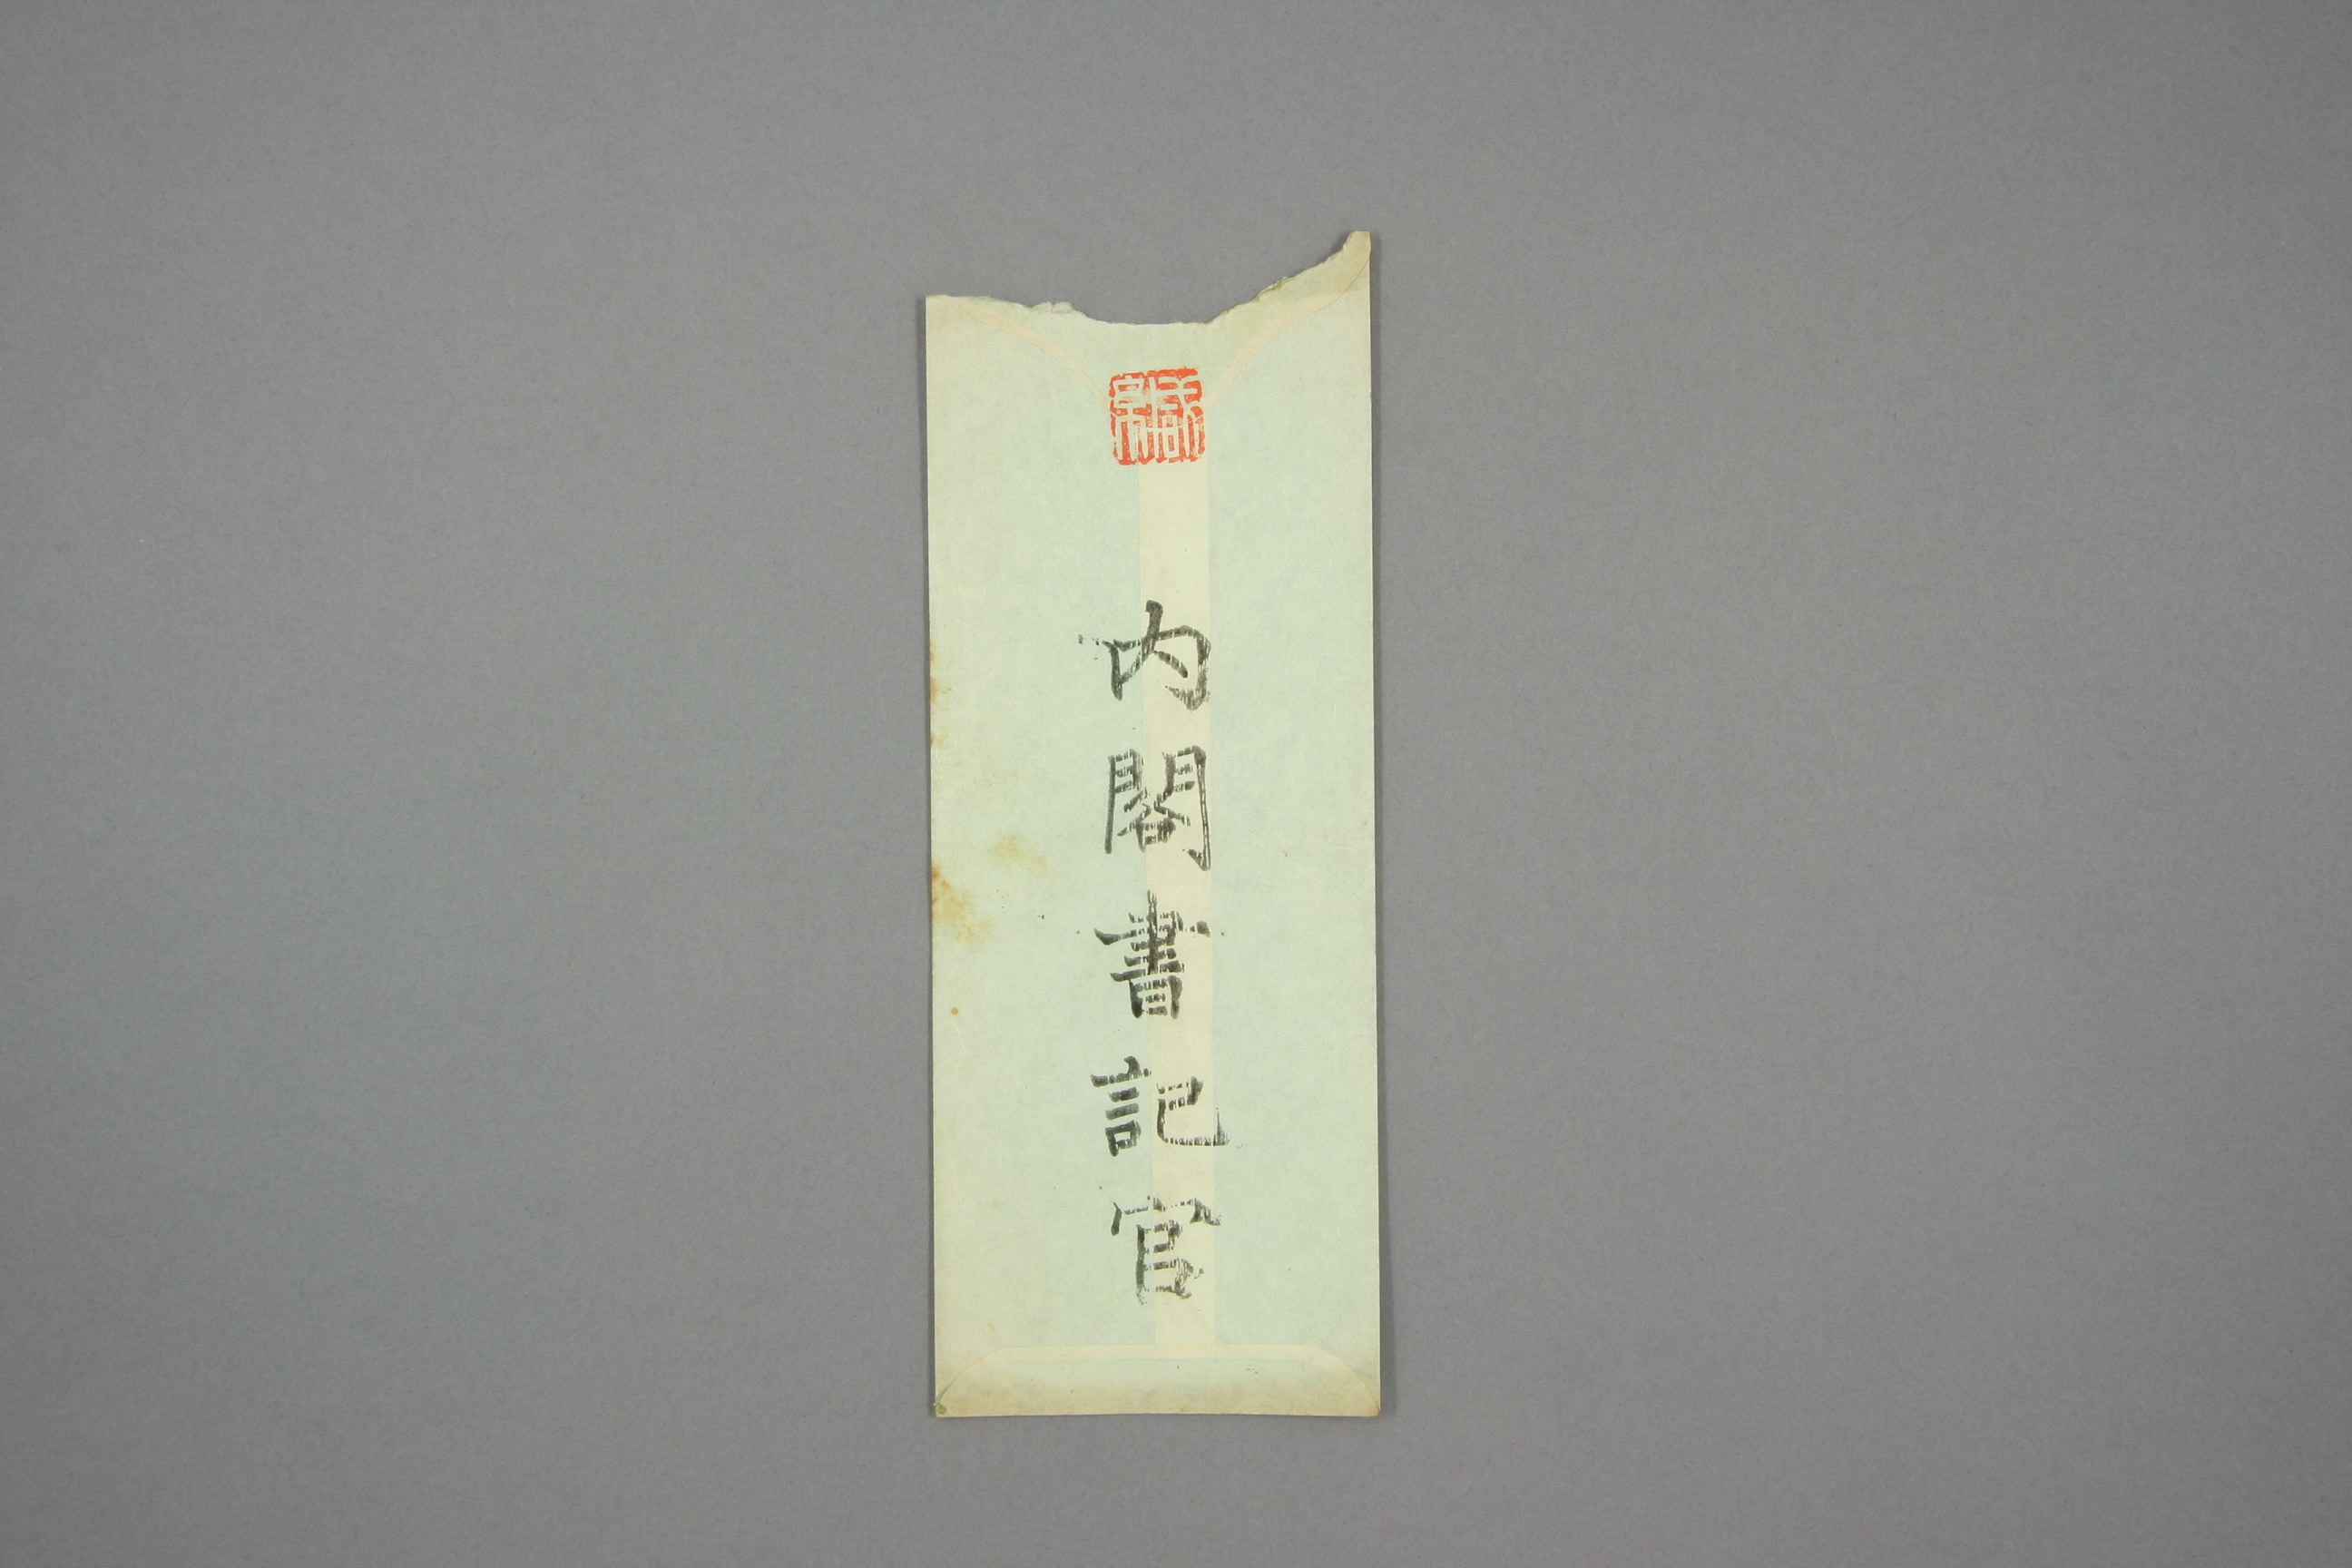 緘
内閣書記官